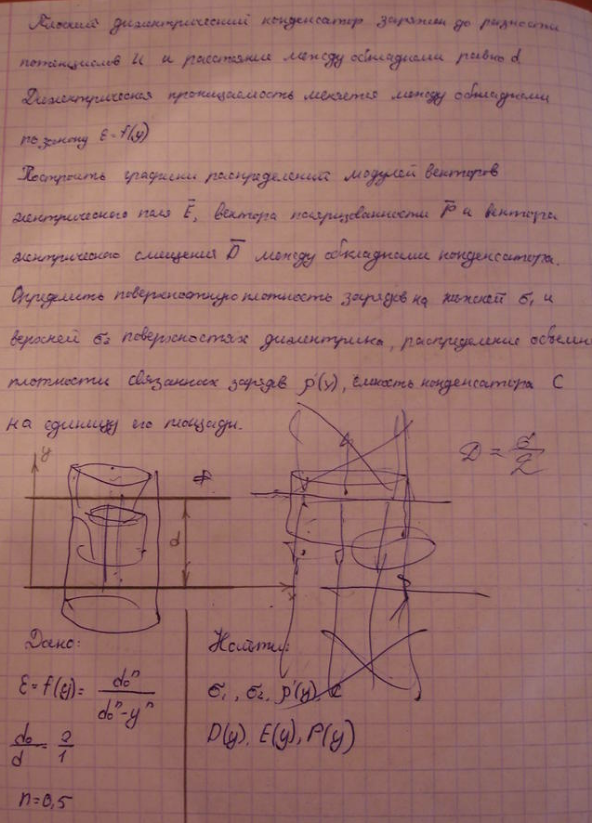 Плоский диэлектрический конденсатор заряжен до разности
потенциалов U и расстояние между обкладками равно d
Диэлектрическая проницаемость меняется между обкладками
по закону ε=f(y)
Построить графики распределений модулей векторов
электрического поля E̅, вектора поляризованности P̅ и вектора
электрического смещения D̅ между обкладками конденсатора.
Определить поверхностную плотность зарядов на нижней σ₁ и
верхней σ₂ поверхностях диэлектрика, распределение объемн
плотности связанных зарядов ρ'(y), ёмкость конденсатора С
на единицу его площади.
D = σ/2
y
d
x
Дано:
Найти:
ε = f(y) = d₀ⁿ/(d₀ⁿ-yⁿ)
σ₁, σ₂, ρ'(y), C
d₀/d = 2/1
D(y), E(y), P(y)
n=0,5